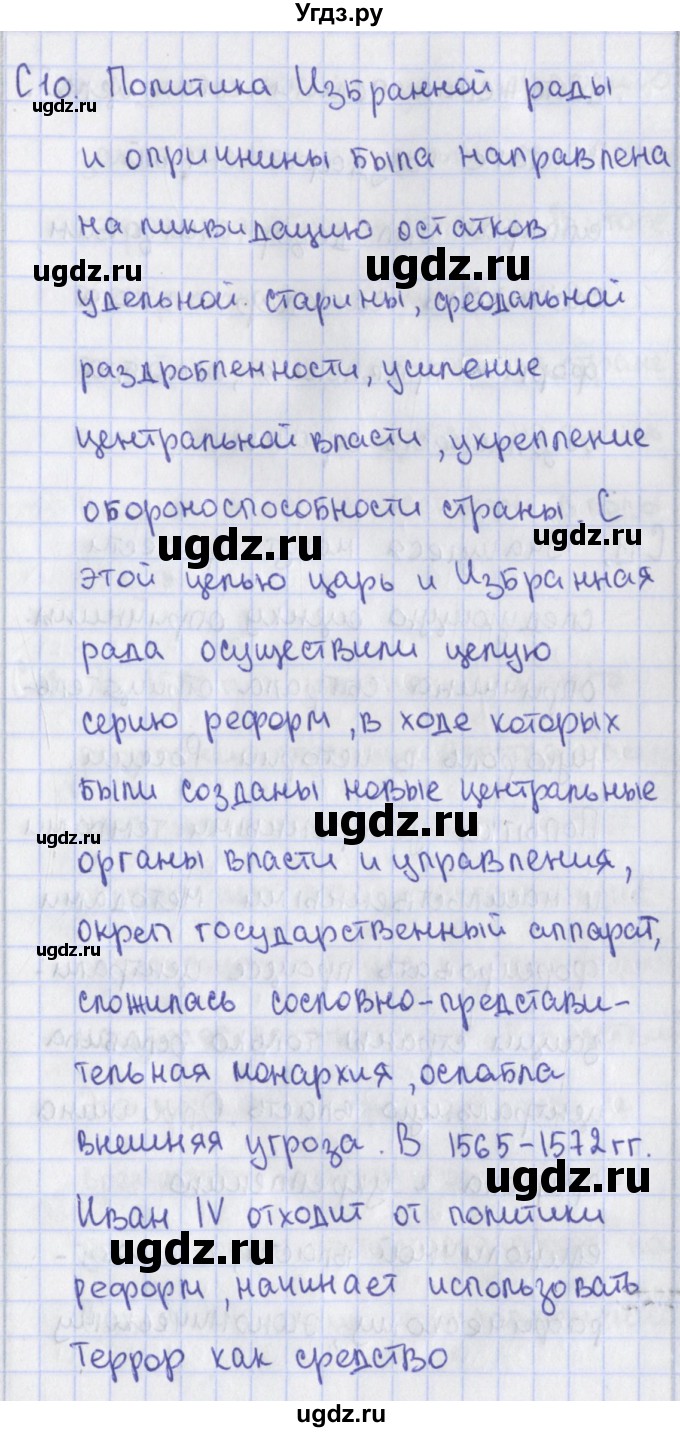 Угдз.ру
С10. Политика Избранной рады
ugdz.ru
и опричнины была направлена
на ликвидацию остатков
ugdz.ru
ugdz.ru
удельной старины, феодальной
раздробленности, усиление
центральной власти, укрепление
обороноспособности страны. С
ugdz.ru
ugdz.ru
этой целью царь и Избранная
рада осуществили целую
серию реформ, в ходе которых
были созданы новые центральные
ugdz.ru
ugdz.ru
органы власти и управления,
окреп государственный аппарат,
ugdz.ru
сложилась сословно-представи-
тельная монархия, ослабла
внешняя угроза. В 1565-1572 гг.
ugdz.ru
Иван IV отходит от политики
ugdz.ru
реформ, начинает использовать
террор как средство
ugdz.ru